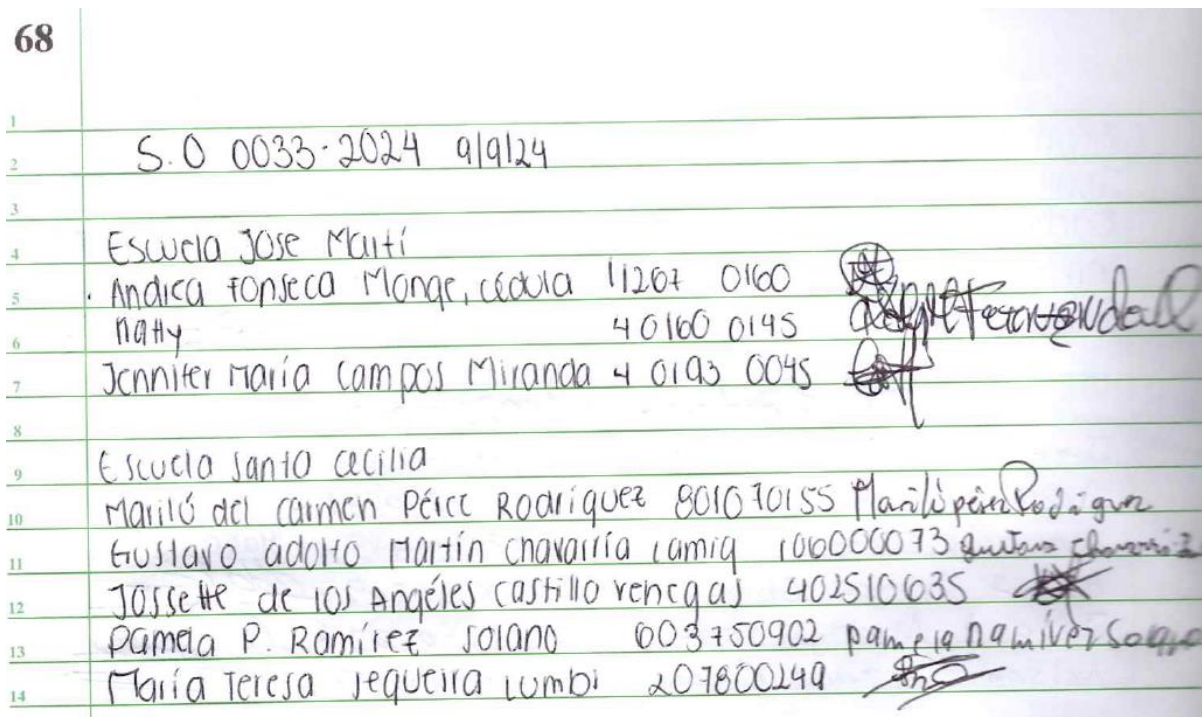 68
1
2 S.O 0033-2024 9/9/24
3
4 Escuela Jose Martí
5 Andrea Fonseca Monge, cédula 11267 0160
6 Natty 40160 0145
7 Jennifer María Campos Miranda 4 0193 0045
8
9 Escuela Santa Cecilia
10 Mariló del Carmen Pérez Rodríguez 801070155 Mariló pérez Rodríguez
11 Gustavo adolfo Martín chavarría 106000073 Gustavo Chavarría
12 Jossette de los Angéles castillo venegas 402510635
13 Pamela P. Ramírez Solano 603750902 Pamela Ramírez Solano
14 María Teresa Sequeira 207800249